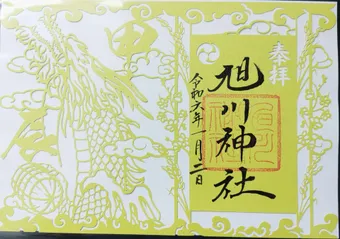 奉拝
旭川神社
令和六年一月二日